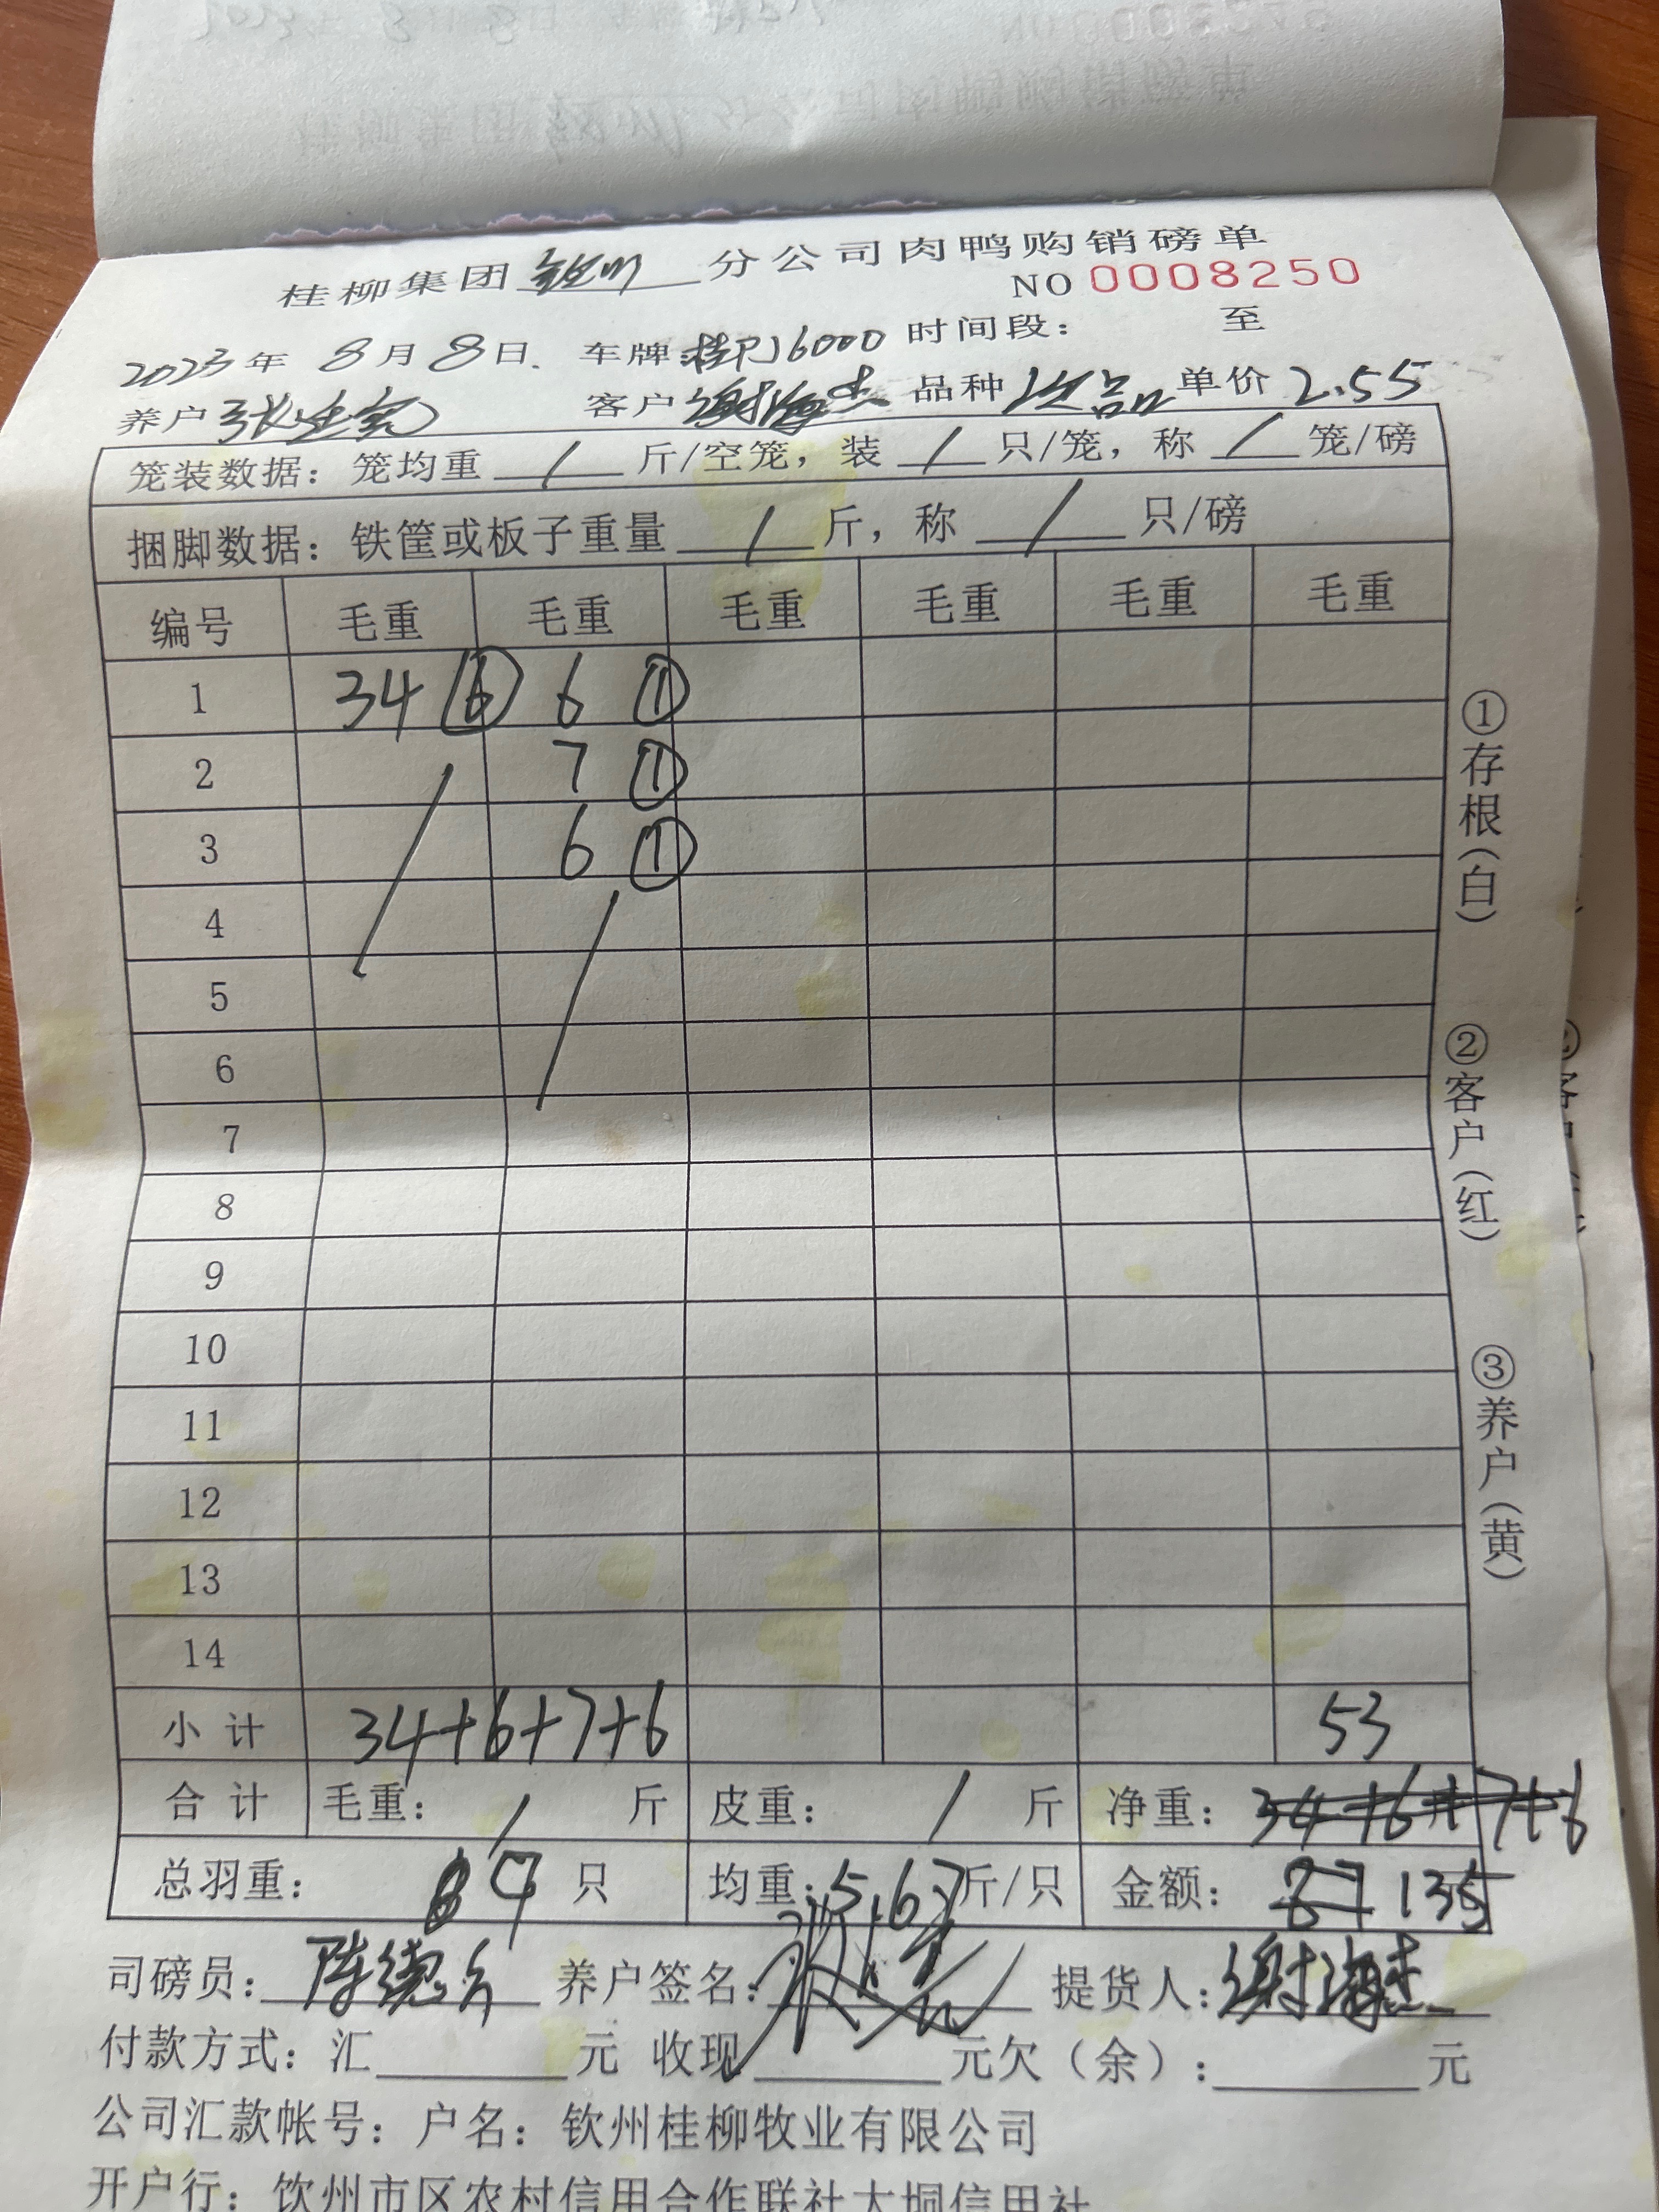 桂柳集团 钦州 分公司肉鸭购销磅单
NO 0008250
2023年 8月8日. 车牌 桂P16000 时间段： 至
养户 客户 谢海杰 品种 次品 单价 2.55
笼装数据：笼均重 / 斤/空笼，装 / 只/笼，称 / 笼/磅
捆脚数据：铁筐或板子重量 / 斤，称 / 只/磅
编号 毛重 毛重 毛重 毛重 毛重 毛重
1 34 ⑥ 6 ①
2 7 ①
3 6 ①
4
5
6
7
8
9
10
11
12
13
14
小计 34+6+7+6 53
合计 毛重： / 斤 皮重： / 斤 净重： 34+6+7+6
总羽重： 只 均重： 5.67 斤/只 金额： 135
司磅员： 陈德 养户签名： 提货人： 谢海杰
付款方式：汇 元 收现 元欠（余）： 元
公司汇款帐号：户名：钦州桂柳牧业有限公司
开户行：钦州市区农村信用合作联社大垌信用社
①存根（白）
②客户（红）
③养户（黄）